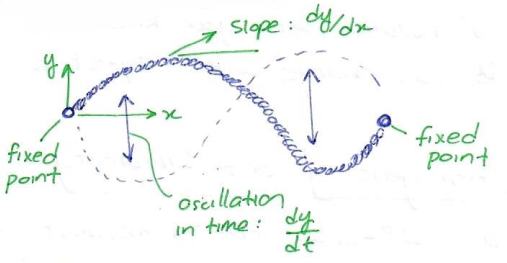 slope: dy/dx
y
x
fixed
point
fixed
point
oscillation
in time: dy/dt